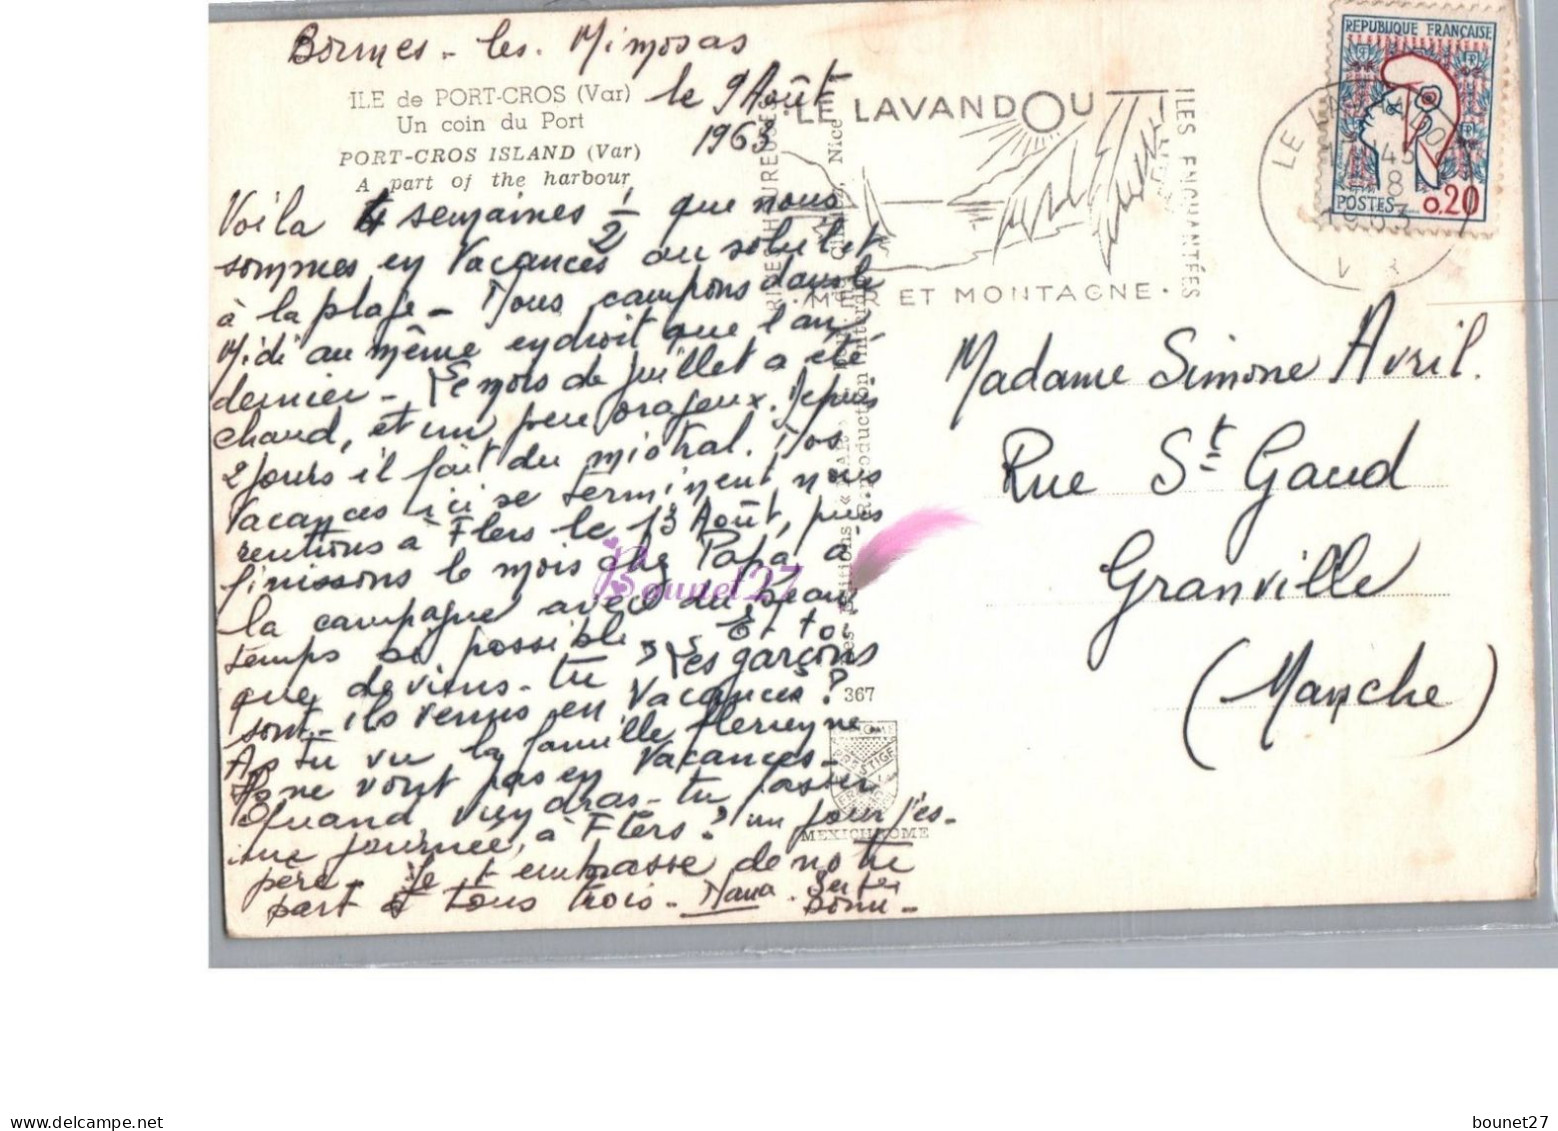 Bormes - les - Mimosas
le 9 Août
1963
ILE de PORT-CROS (Var)
Un coin du Port
PORT-CROS ISLAND (Var)
A part of the harbour
Voila 4 semaines 1/2 que nous
sommes en Vacances au soleil et
à la plage - Nous campons dans le
Midi au même endroit que l'an
dernier - Le mois de juillet a été
chaud, et un peu orageux. Depuis
2 jours il fait du mistral. Nos
Vacances ici se terminent nous
rentrons à Flers le 13 Août, puis
finissons le mois chez Papa à
la campagne avec du beau
temps si possible. Et toi
que deviens-tu, Les garçons
sont-ils venus en Vacances?
As tu vu la famille
ne vont pas en Vacances -
Quand viendras-tu passer
une journée, à Flers? un jour j'es-
père - Je t'embrasse de notre
part à tous trois - Nana
LE LAVANDOU
MER ET MONTAGNE
ILES ENCHANTÉES
RIVES HEUREUSES
REPUBLIQUE FRANÇAISE
POSTES 0,20
LE LAVANDOU
VAR
Madame Simone Avril.
Rue St Gaud
Granville
(Manche)
Nice
Reproduction interdite
367
MEXICHROME
Bounet27
www.delcampe.net
bounet27